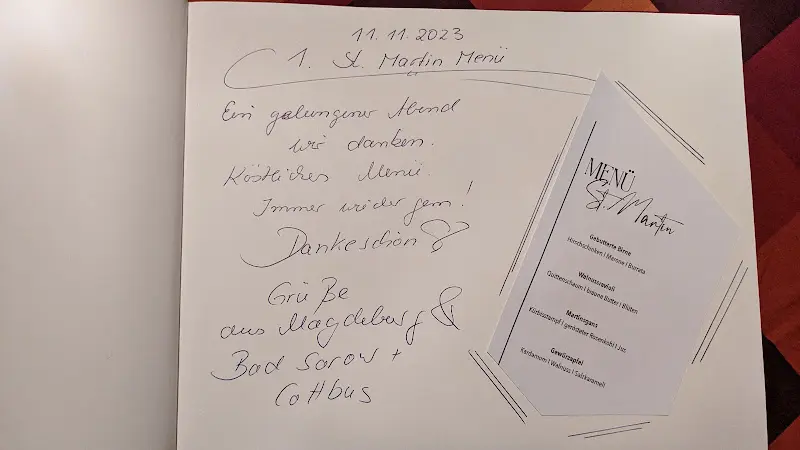 11.11.2023
1. St. Martin Menü
Ein gelungener Abend
wir danken.
Köstliches Menü.
Immer wieder gern!
Dankeschön
Grüße
aus Magdeburg &
Bad Sarow +
Cottbus
MENÜ
St. Martin
Gebutterte Birne
Hirschschinken I Marone I Burrata
Walnussravioli
Quittenschaum I braune Butter I Blüten
Martinsgans
Kürbisstampf I gerösteter Rosenkohl I Jus
Gewürzapfel
Kardamom I Walnuss I Salzkaramell